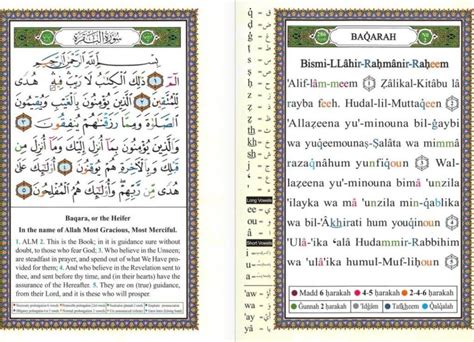 سُورَةُ الْبَقَرَةِ
بِسْمِ اللَّهِ الرَّحْمَٰنِ الرَّحِيمِ
الٓمٓ ١ ذَٰلِكَ الْكِتَٰبُ لَا رَيْبَ فِيهِ هُدًى
لِّلْمُتَّقِينَ ٢ الَّذِينَ يُؤْمِنُونَ بِالْغَيْبِ وَيُقِيمُونَ
الصَّلَوٰةَ وَمِمَّا رَزَقْنَٰهُمْ يُنفِقُونَ ٣
وَالَّذِينَ يُؤْمِنُونَ بِمَآ أُنزِلَ إِلَيْكَ وَمَآ أُنزِلَ مِن
قَبْلِكَ وَبِالْءَاخِرَةِ هُمْ يُوقِنُونَ ٤ أُولَٰٓئِكَ عَلَىٰ
هُدًى مِّن رَّبِّهِمْ وَأُولَٰٓئِكَ هُمُ الْمُفْلِحُونَ ٥
Baqara, or the Heifer
In the name of Allah Most Gracious, Most Merciful.
1. ALM 2. This is the Book; in it is guidance sure without
doubt, to those who fear God; 3. Who believe in the Unseen,
are steadfast in prayer, and spend out of what We have Pro-
vided for them; 4. And who believe in the Revelation sent to
thee, and sent before thy time, and (in their hearts) have the
assurance of the Hereafter. 5. They are on (true) guidance,
from their Lord, and it is these who will prosper.
Long Vowels
Short Vowels
'aw
'ay
wa
ya
BAQARAH
Bismi-LLâhir-Raḥmânir-Raḥeem
'Alif-lâm-meem 1 Ẓâlikal-Kitâbu lâ
rayba feeh. Hudal-lil-Muttaqeen 2
'Allaẓeena yu'-minouna bil-ğaybi
wa yuqeemounaṣ-Ṣalâta wa mimmâ
razaqnâhum yunfiqoun 3 Wal-
laẓeena yu'-minouna bimâ 'unzila
'ilayka wa mâ 'unzila min-qablika
wa bil-'Âkhirati hum youqinoun 4
'Ulâ-'ika 'alâ Hudammir-Rabbihim
wa 'ulâ-'ika humul-Muf-liḥoun 5
Madd 6 ḥarakah 4-5 ḥarakah 2 ḥarakah
Ğunnah 2 ḥarakah 'Idğâm Tafkheem Qalqalah